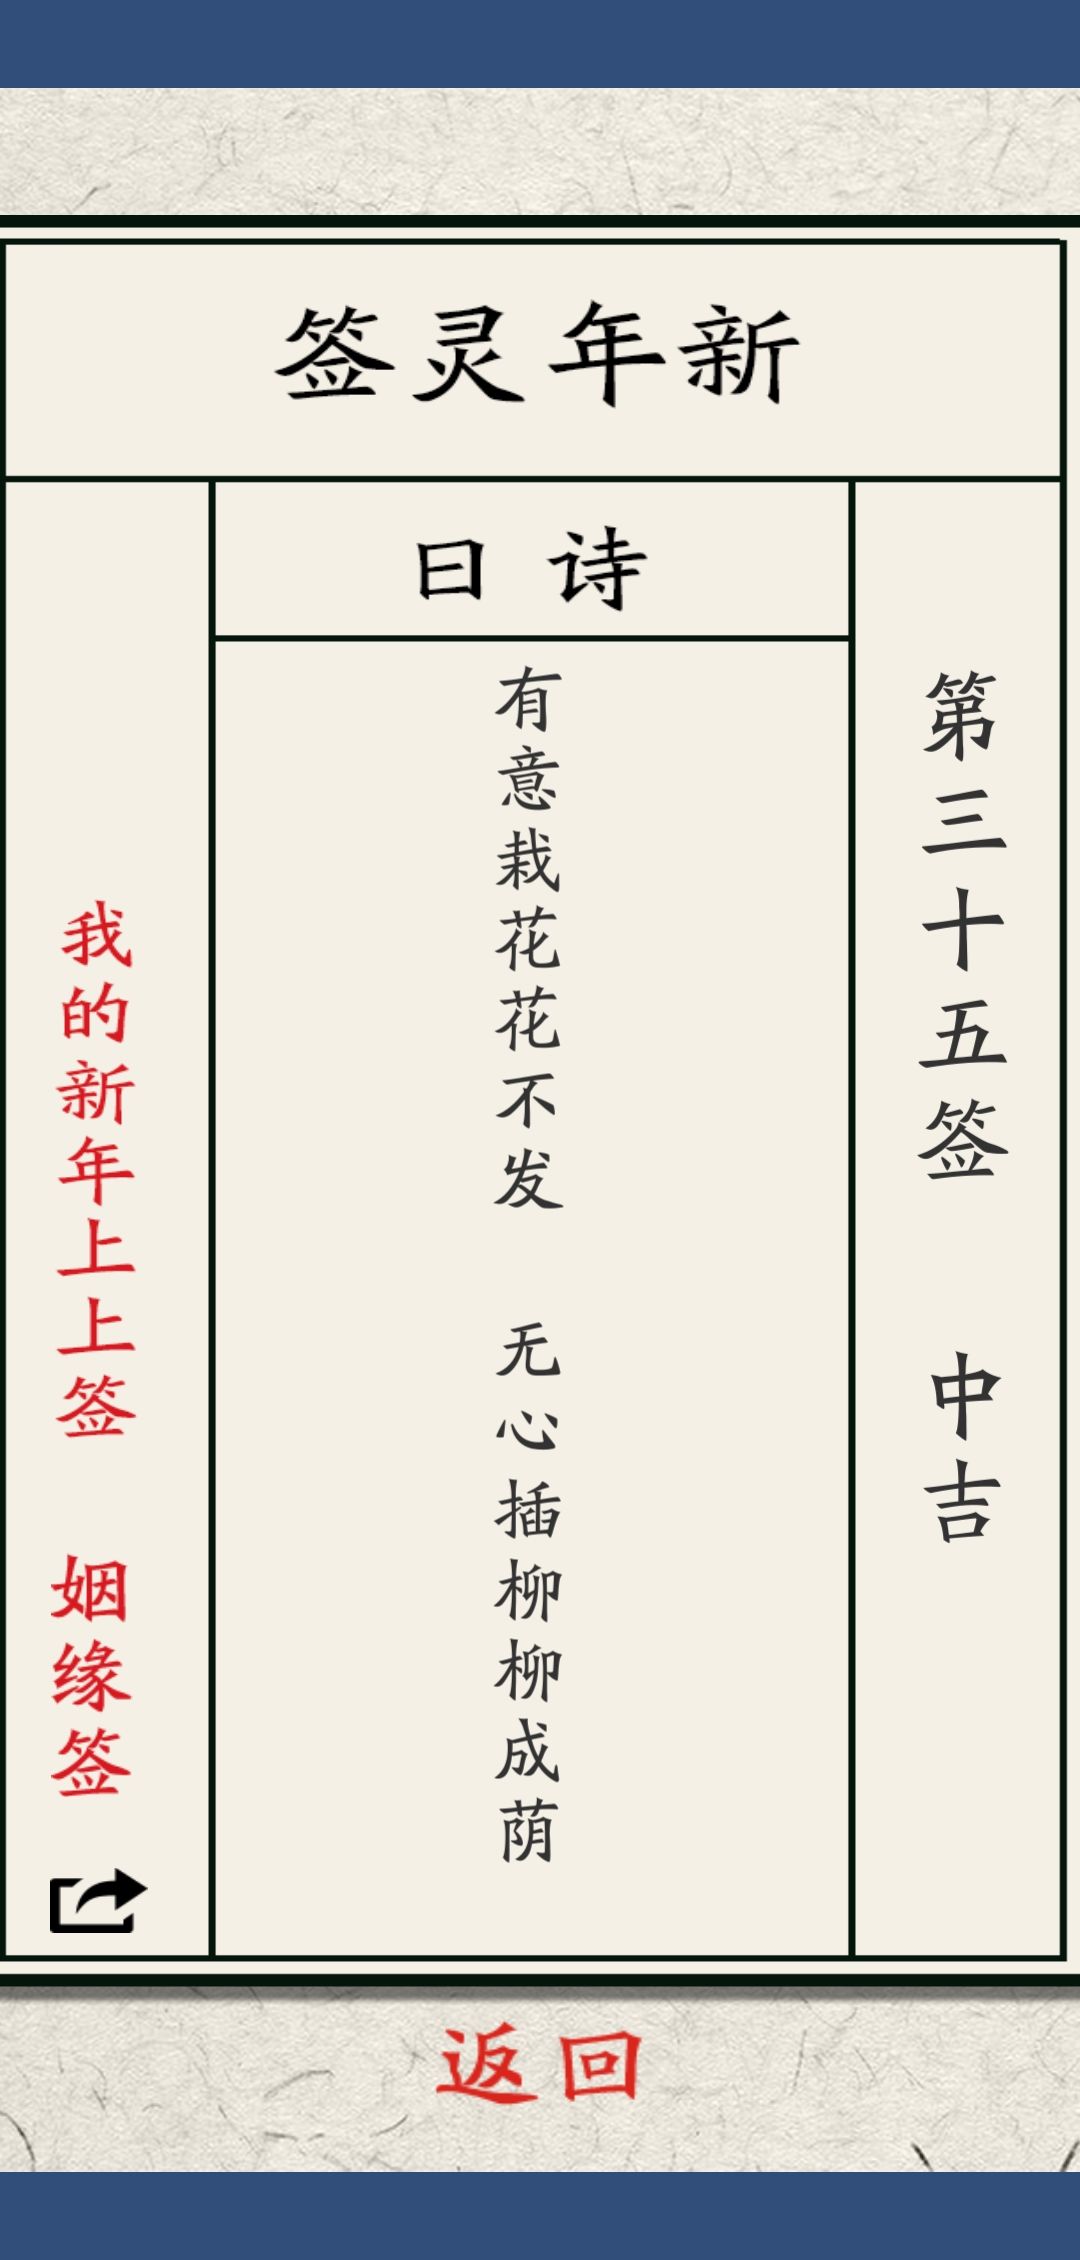 新年灵签
诗曰
第三十五签 中吉
有意栽花花不发
无心插柳柳成荫
我的新年上上签 姻缘签
返回